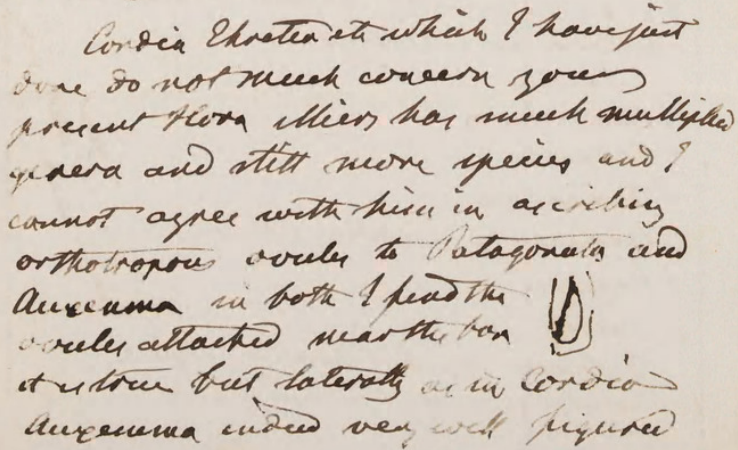 Cordia Ehretia etc which I have just
done do not much concern your
present Flora Miers has much multiplied
genera and still more species and I
cannot agree with him in ascribing
orthotropous ovules to Patagonula and
Auxemma in both I find the
ovules attached near the base
it is true but laterally as in Cordia
Auxemma indeed very well figured